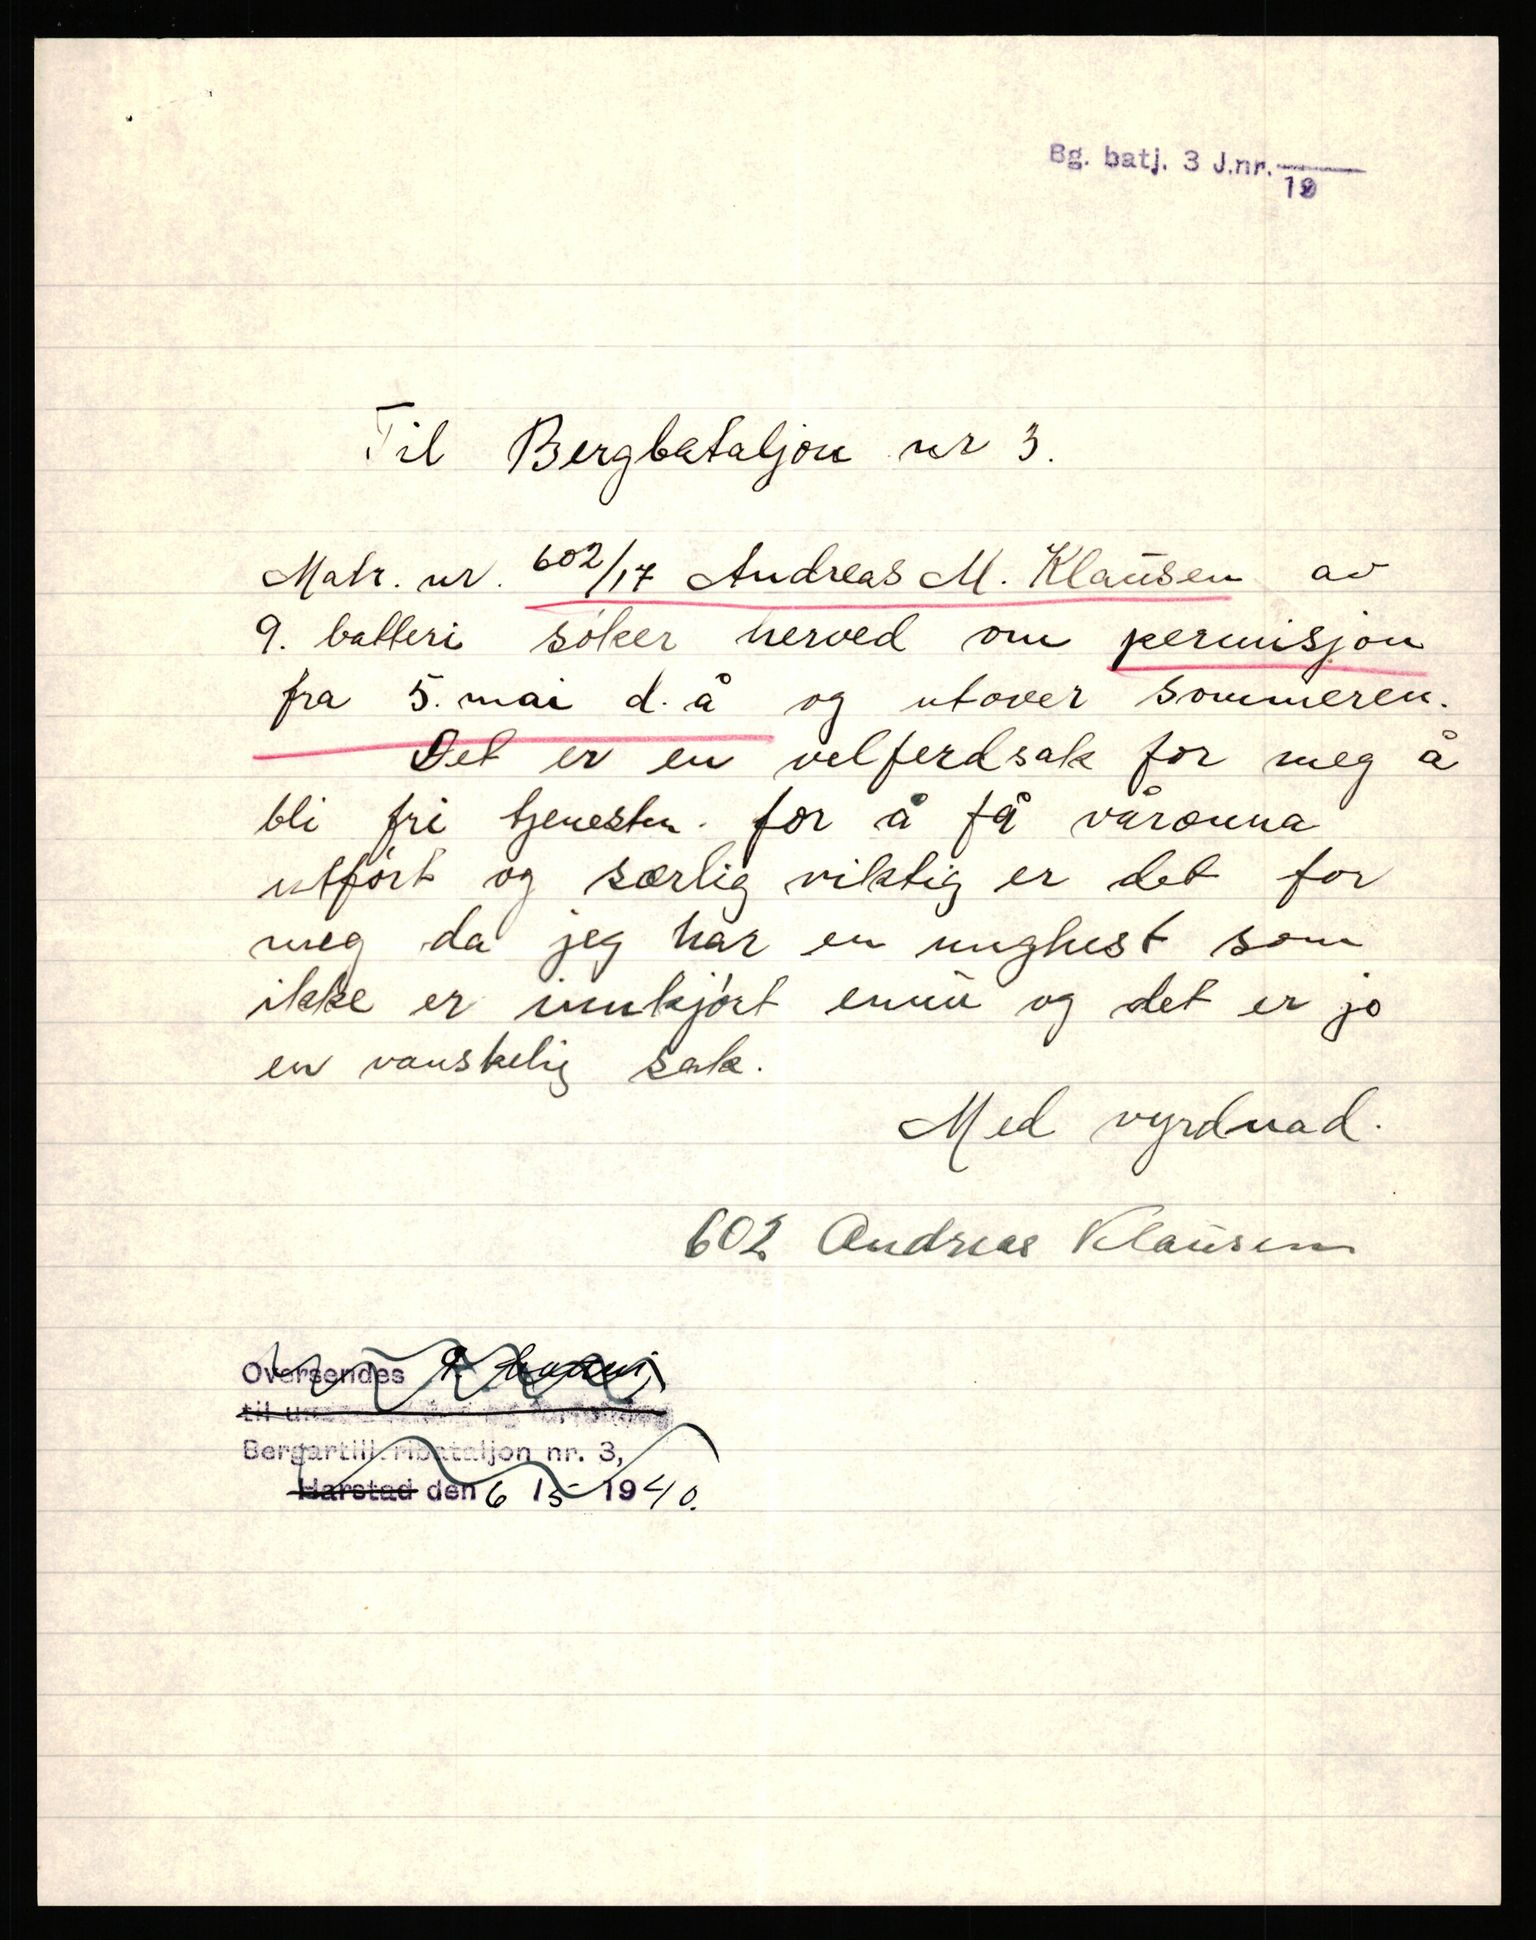 Bg. batj. 3 J.nr.
19
Til Bergbataljon nr 3.
Matr. nr. 602/17 Andreas M. Klausen av
9. batteri söker herved om permisjon
fra 5. mai d. å og utover sommeren.
Det er en velferdsak for meg å
bli fri tjenesten. for å få våronna
utfört og særlig viktig er det for
meg da jeg har en unghest som
ikke er innkjört ennu og det er jo
en vanskelig sak.
Med vyrdnad.
602 Andreas Klausen
Oversendes 9.
til
Bergartilleribataljon nr. 3,
Harstad den 6/5 1940.